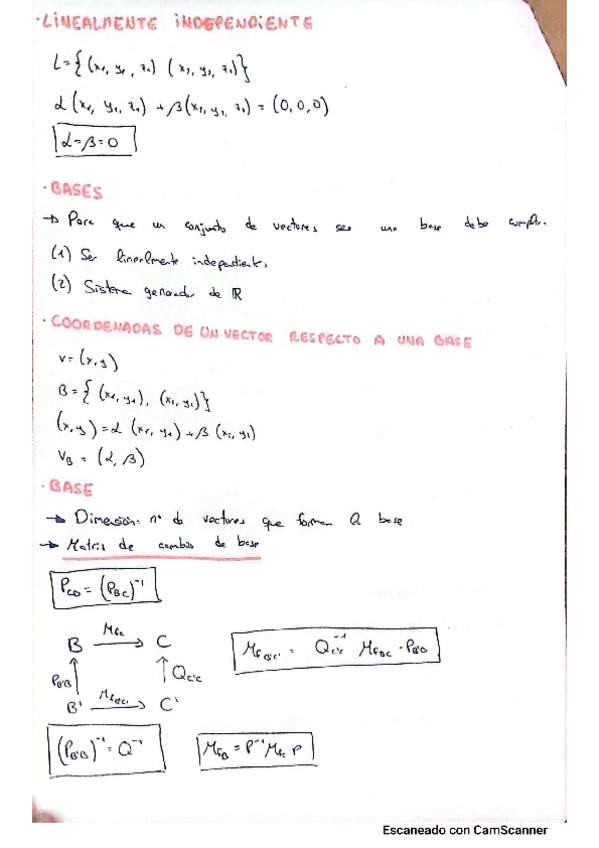 · LINEALMENTE INDEPENDIENTE
L = { (x₁, y₁, z₁) (x₂, y₂, z₂) }
α (x₁, y₁, z₁) + β (x₂, y₂, z₂) = (0, 0, 0)
α = β = 0
· BASES
→ Para que un conjunto de vectores sea una base debe cumplir.
(1) Ser linealmente independientes
(2) Sistema generador de ℝ
· COORDENADAS DE UN VECTOR RESPECTO A UNA BASE
v = (x, y)
B = { (x₁, y₁), (x₂, y₂) }
(x, y) = α (x₁, y₁) + β (x₂, y₂)
V_B = (α, β)
· BASE
→ Dimensión: nº de vectores que forman a base
→ Matriz de cambio de base
= (P_BC)⁻¹
B → C
P_B'B ↑ ↑ Q_C'C
B' → C'
(P_B'B)⁻¹ = Q⁻¹
Escaneado con CamScanner